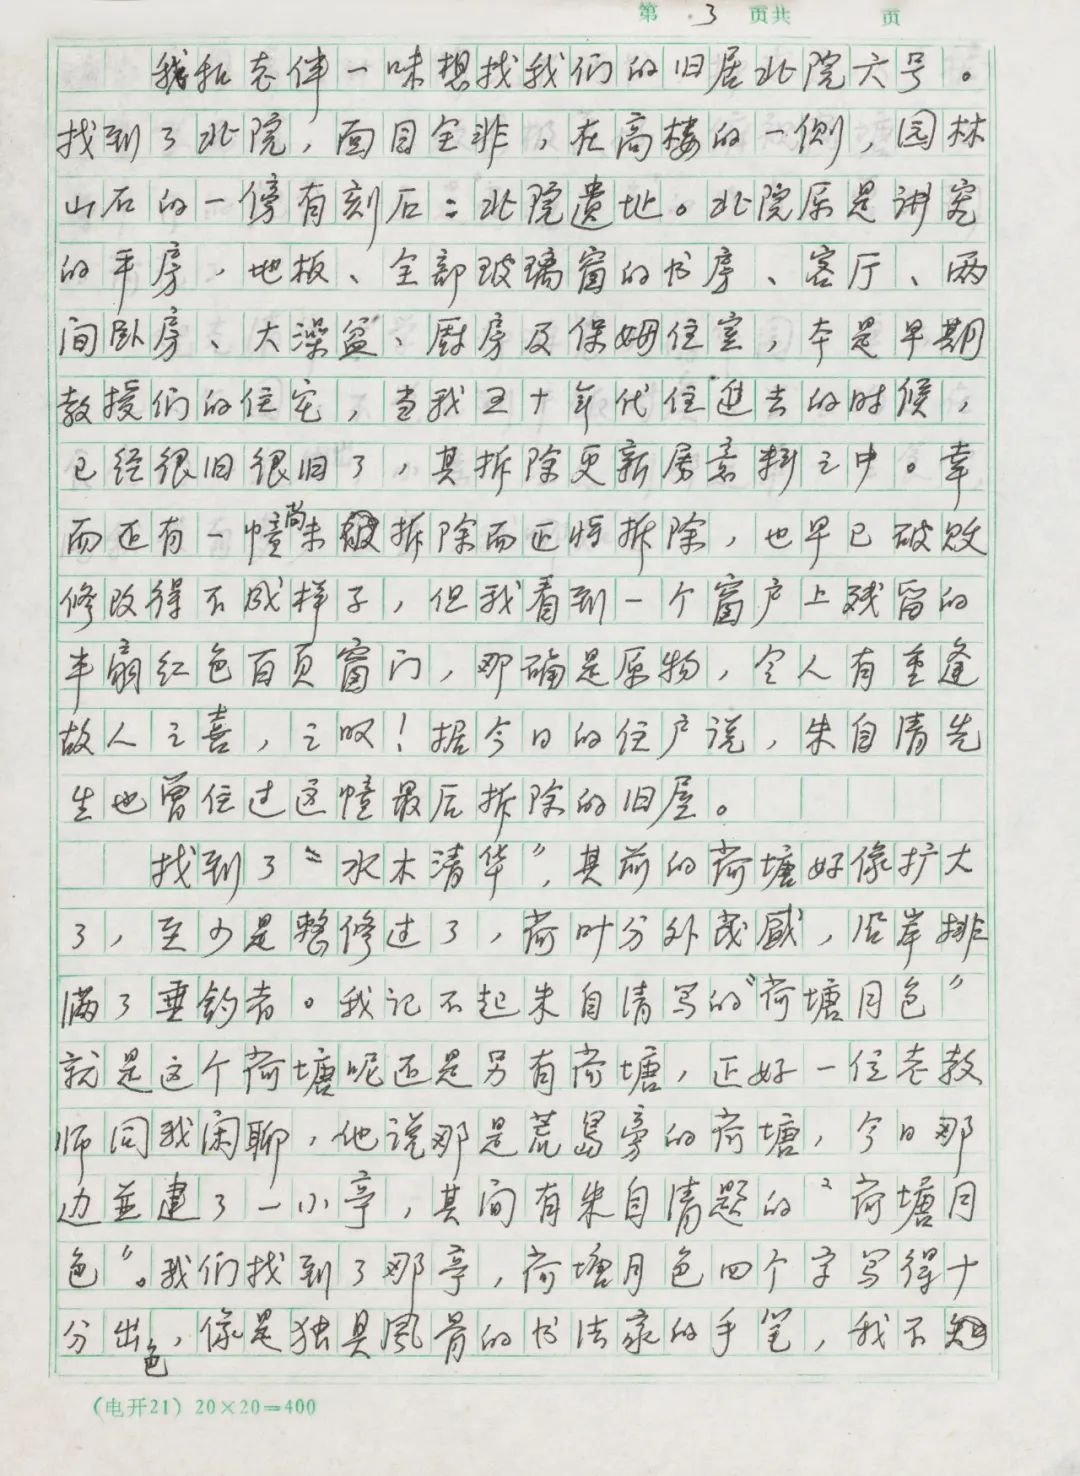 第 3 页共 页
我和老伴一味想找我们的旧居北院六号。
找到了北院，面目全非，在高楼的一侧，园林
山石的一傍有刻石：北院遗址。北院原是讲究
的平房，地板、全部玻璃窗的书房、客厅、两
间卧房、大澡盆、厨房及保姆住室，本是早期
教授们的住宅，当我五十年代住进去的时候，
已经很旧很旧了，其拆除更新属意料之中。幸
而还有一幢尚未被拆除而正将拆除，也早已破败
修改得不成样子，但我看到一个窗户上残留的
半扇红色百页窗门，那确是原物，令人有重逢
故人之喜，之叹！据今日的住户说，朱自清先
生也曾住过这幢最后拆除的旧屋。
找到了“水木清华”，其前的荷塘好像扩大
了，至少是整修过了，荷叶分外茂盛，沿岸排
满了垂钓者。我记不起朱自清写的“荷塘月色”
就是这个荷塘呢还是另有荷塘，正好一位老教
师同我闲聊，他说那是荒岛旁的荷塘，今日那
边並建了一小亭，其间有朱自清题的“荷塘月
色”。我们找到了那亭，荷塘月色四个字写得十
分出色，像是独具风骨的书法家的手笔，我不知
（电开21）20×20=400